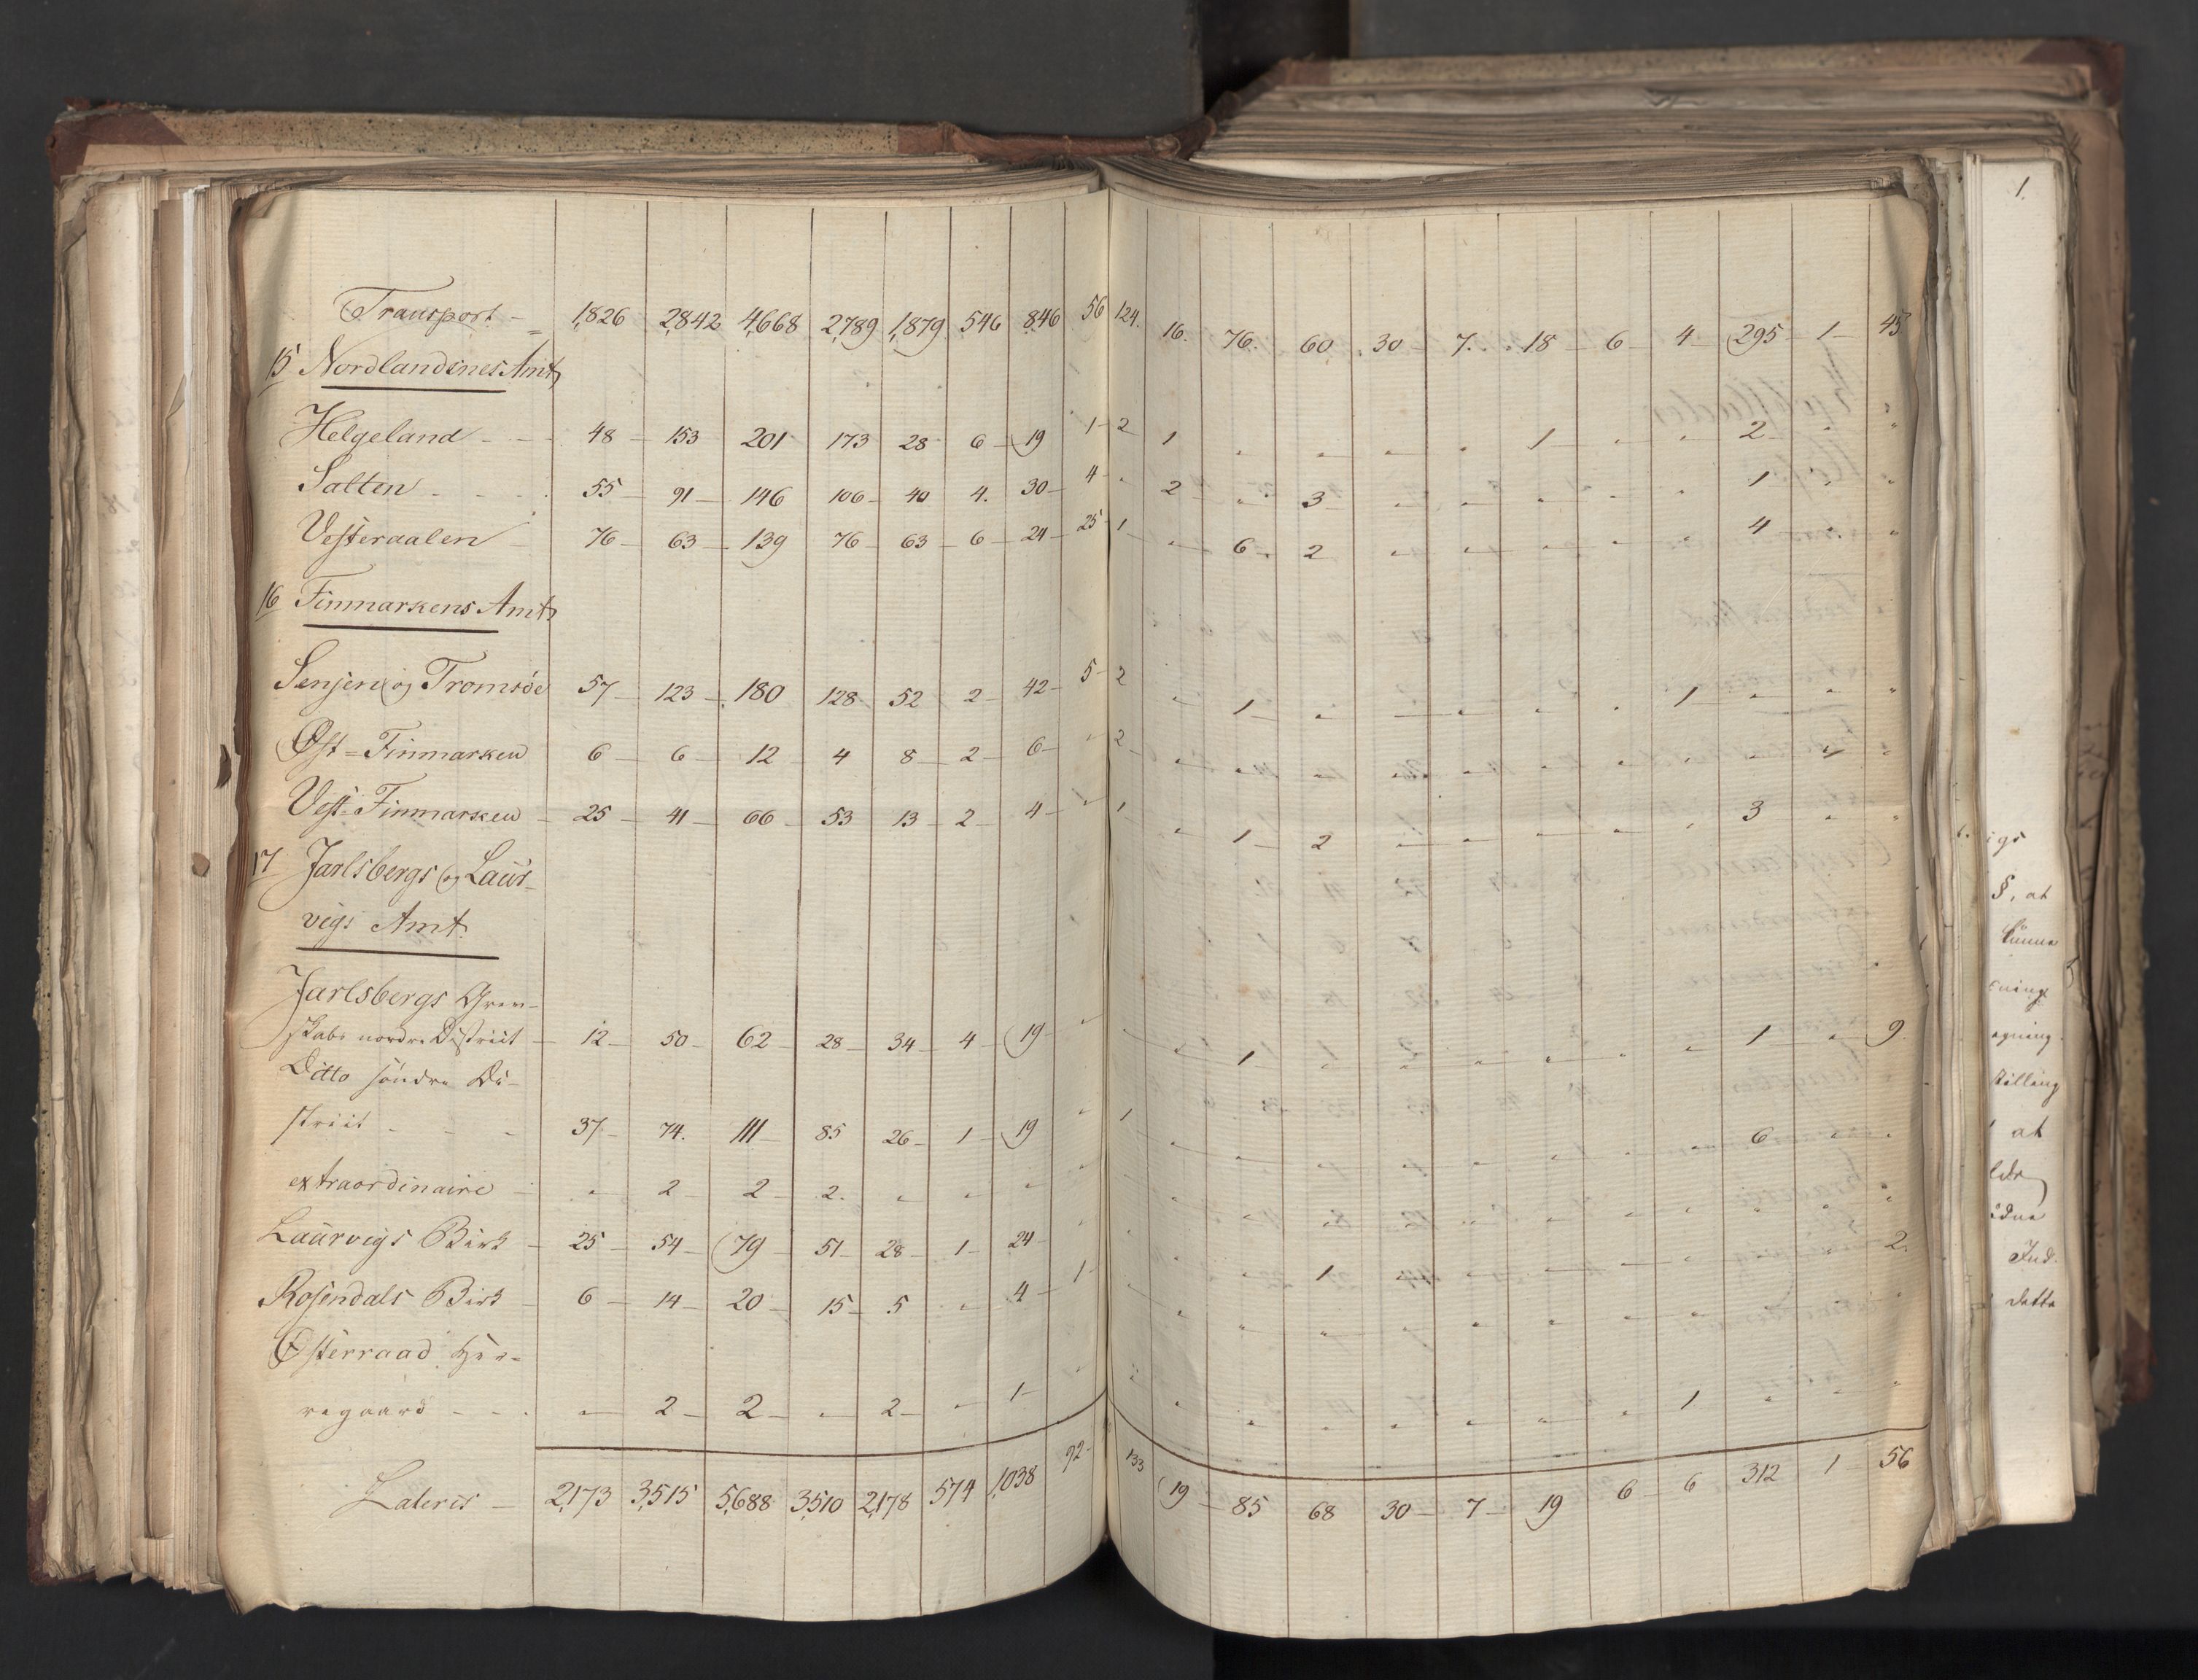 Transport - 1,826 2,842 4,668 2,789 1,879 546 846 56 124. 16. 76. 60 30 7. 18 6 4 295 1 45
15 Nordlandenes Amt
Helgeland - - - 48 - 153 201 173 28 6 19 1 - 2 1 " " " " 1 " " 2 " "
Salten - - - 55 91 146 106 40 4. 30 4 " 2 " 3 " " " " " 1 " "
Vesteraalen 76 63 139 76 63 6 24 25 1 " 6 2 " " " " " 4 " "
16 Finmarkens Amt
Senjen og Tromsöe 57 123 180 128 52 2 42 5 2 " 1 " " " " " 1 " " "
Øst=Finmarken 6 6 12 4 8 2 6 " 2 " " " " " " " " " " "
Vest=Finmarken 25 41 66 53 13 2 4 " 1 " 1 2 " " " " " 3 " "
17 Jarlsbergs og Laur-
vigs Amt.
Jarlsbergs Grev-
skabs nordre District 12 50 62 28 34 4 19 " " " 1 " " " " " " 1 " 9.
Ditto söndre Di-
strict - - - 37 74. 111 85 26 1 19 " 1 " " " " " " " " 6 " "
extraordinaire " 2 2 2. " " " " " " " " " " " " " " " "
Laurvigs Birk 25 54 79 51 28 1 24 " " " " 1 " " " " " " " 2.
Rosendals Birk 6 14 20 15 5 " 4 1 " " " " " " " " " " " "
Østerraad Her-
regaard - - - " 2 2 " 2 " 1 " 2 " " " " " " " 1 " " "
Lateris - 2,173 3,515 5,688 3,510 2,178 574 1,038 92 133 19 85 68 30 7 19 6 6 312 1 56
1.
igs
§, at
kunne
ning
egning
stilling
at
Ind.
dette